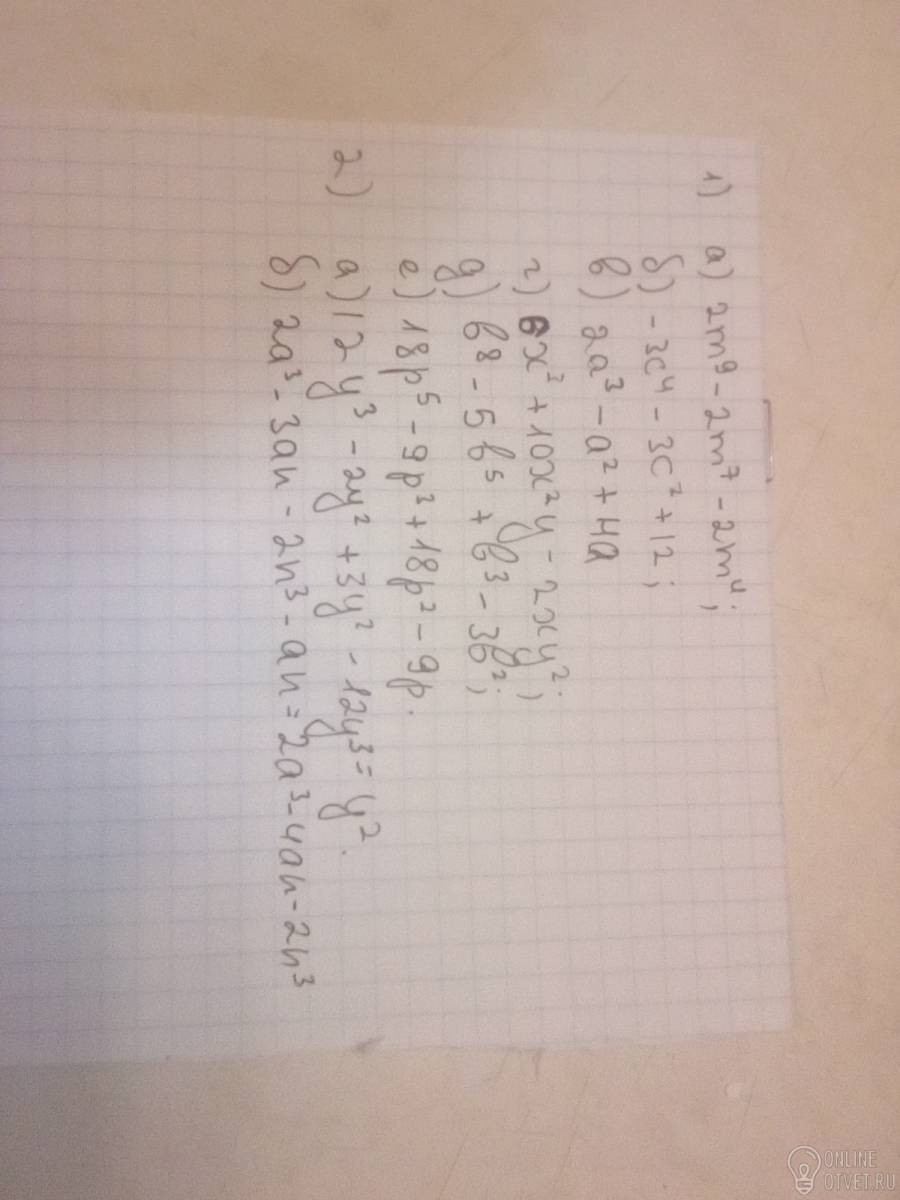 1) а) 2m⁹ - 2m⁷ - 2m⁴;
б) - 3c⁴ - 3c² + 12;
в) 2a³ - a² + 4a
г) 6x³ + 10x²y - 2xy²;
д) b⁸ - 5b⁵ + b³ - 3b²;
е) 18p⁵ - 9p³ + 18p² - 9p.
2) а) 12y³ - 2y² + 3y² - 12y³ = y².
б) 2a³ - 3an - 2n³ - an = 2a³ - 4an - 2n³
ONLINE
OTVET.RU